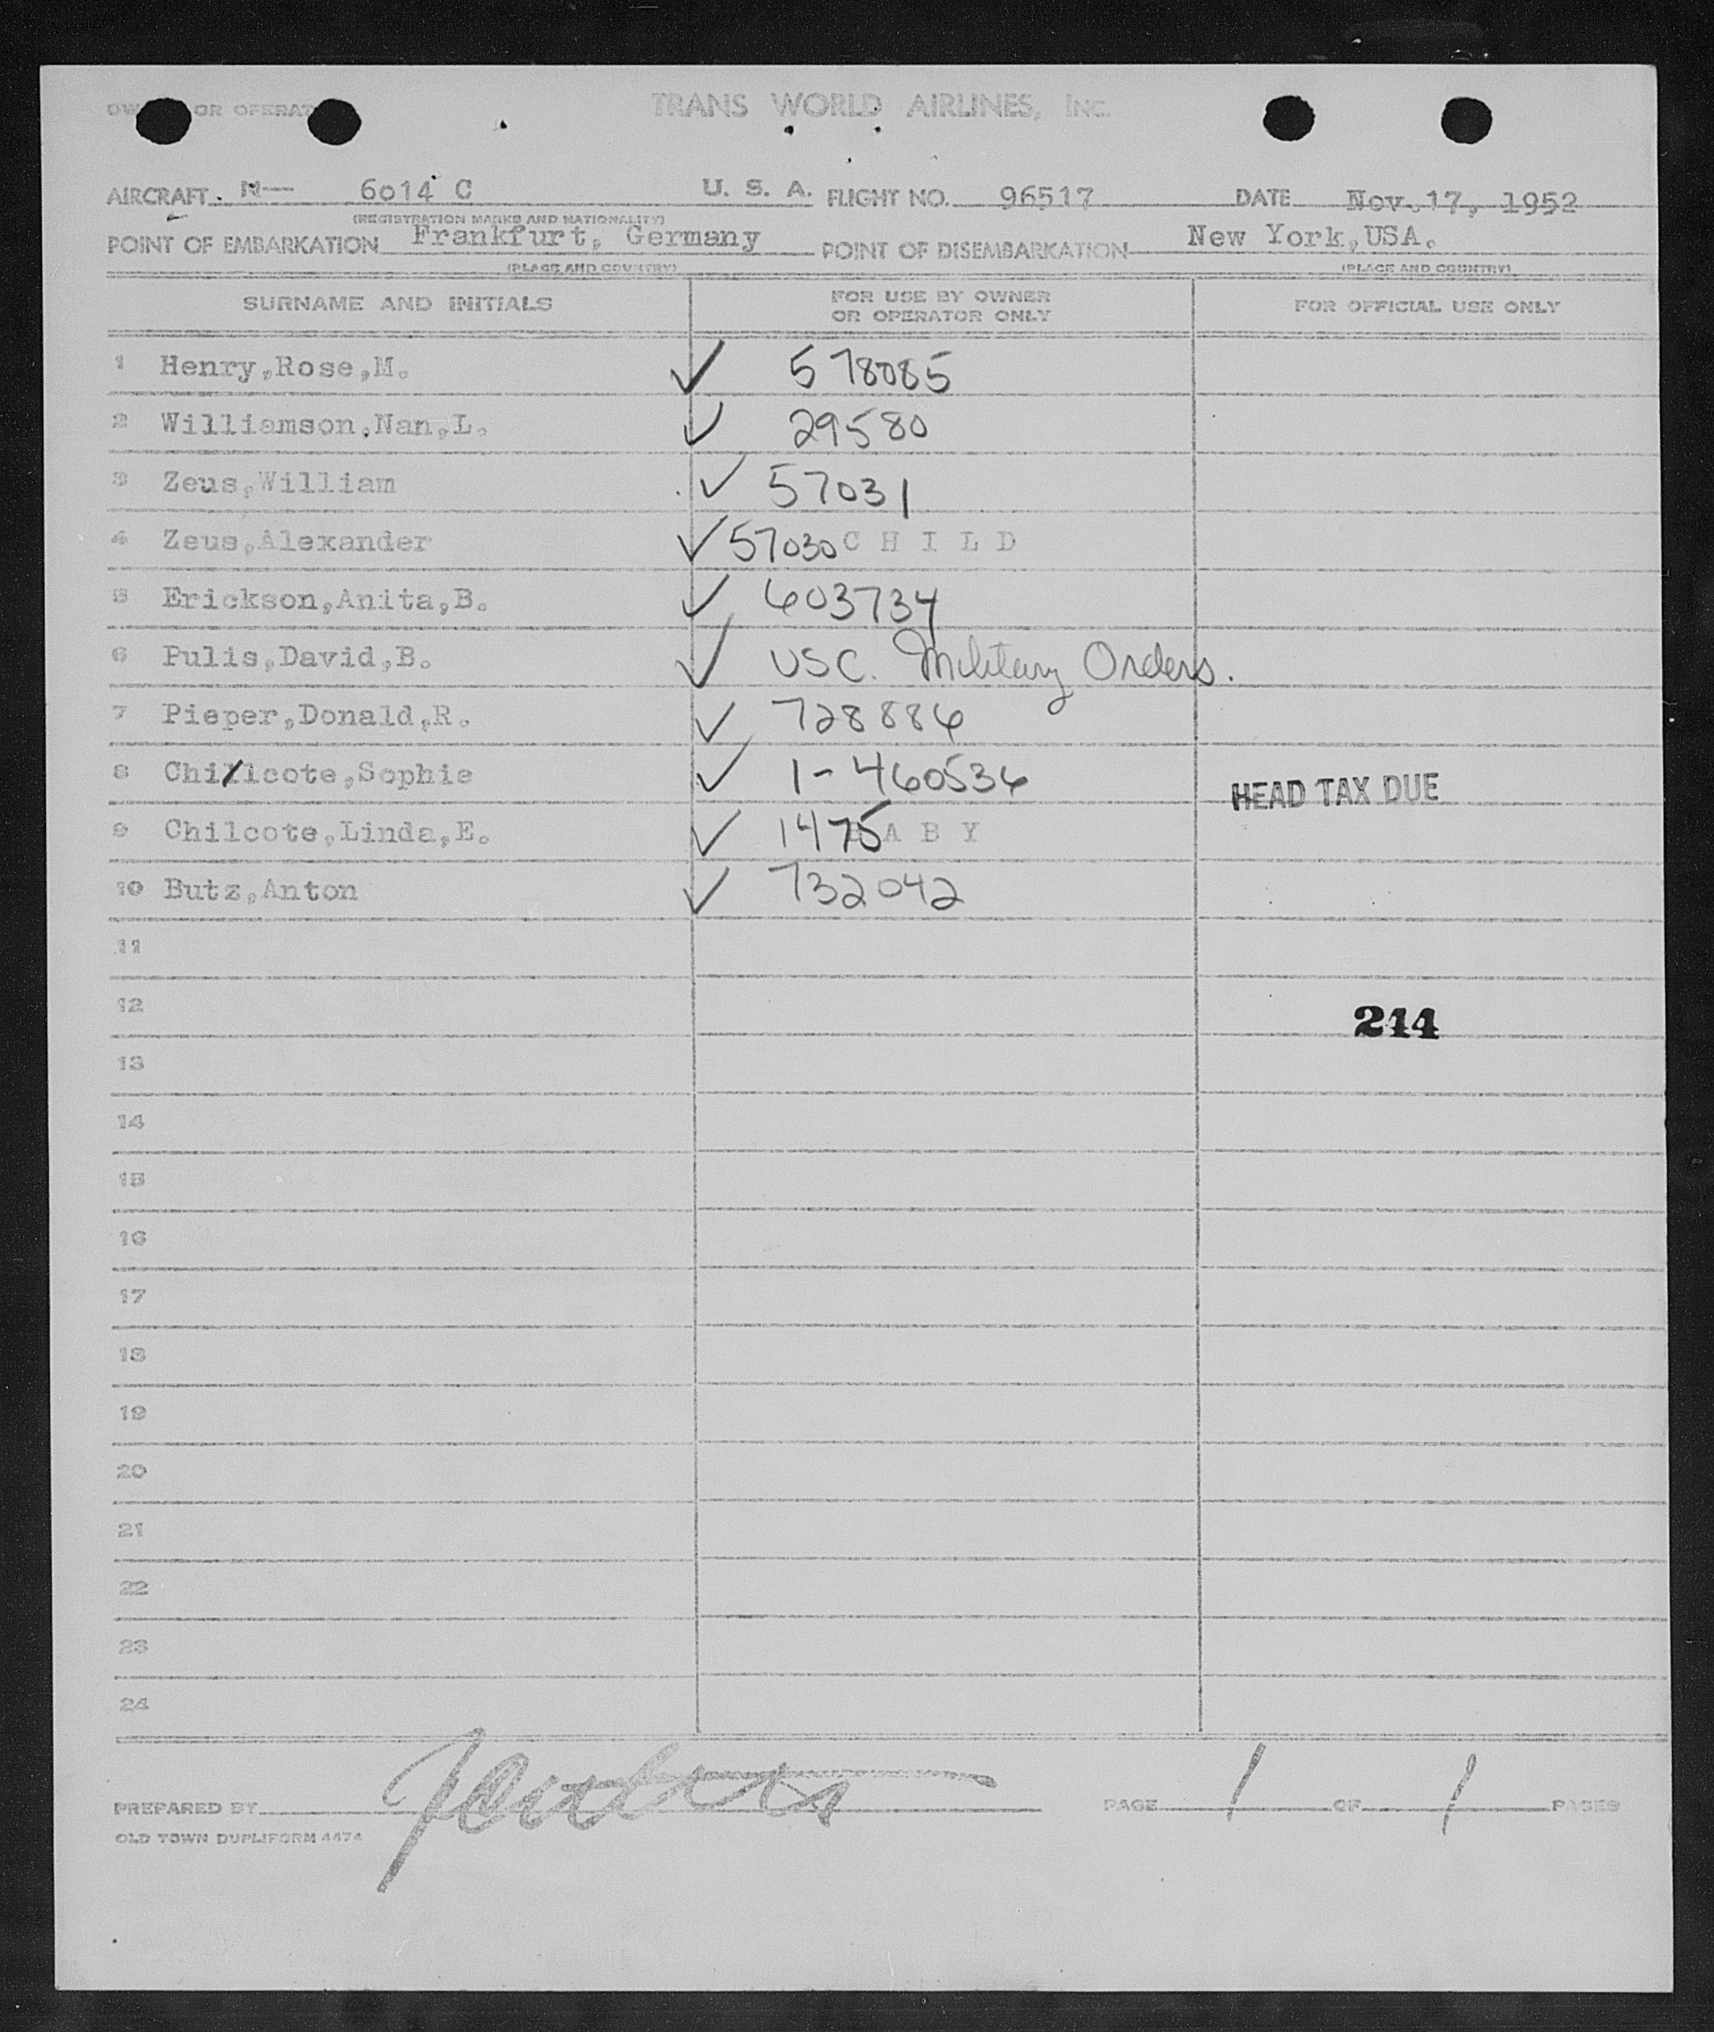 OR OPERAT
TRANS WORLD AIRLINES, INC.
AIRCRAFT N— 6014 C U. S. A. FLIGHT NO. 96517 DATE Nov. 17, 1952
(REGISTRATION MARKS AND NATIONALITY)
POINT OF EMBARKATION Frankfurt, Germany POINT OF DISEMBARKATION New York,USA.
(PLACE AND COUNTRY) (PLACE AND COUNTRY)
SURNAME AND INITIALS FOR USE BY OWNER OR OPERATOR ONLY FOR OFFICIAL USE ONLY
1 Henry,Rose,M. ✓ 578085
2 Williamson,Nan,L. ✓ 29580
3 Zeus,William ✓ 57031
4 Zeus,Alexander ✓ 57030 C H I L D
5 Erickson,Anita,B. ✓ 603734
6 Pulis,David,B. ✓ USC. Military Orders.
7 Pieper,Donald,R. ✓ 728886
8 Chillcote,Sophie ✓ 1-460536 HEAD TAX DUE
9 Chilcote,Linda,E. ✓ 1475 B A B Y
10 Butz,Anton ✓ 732042
11
12 244
13
14
15
16
17
18
19
20
21
22
23
24
PREPARED BY PAGE 1 OF 1 PAGES
OLD TOWN DUPLIFORM 4474